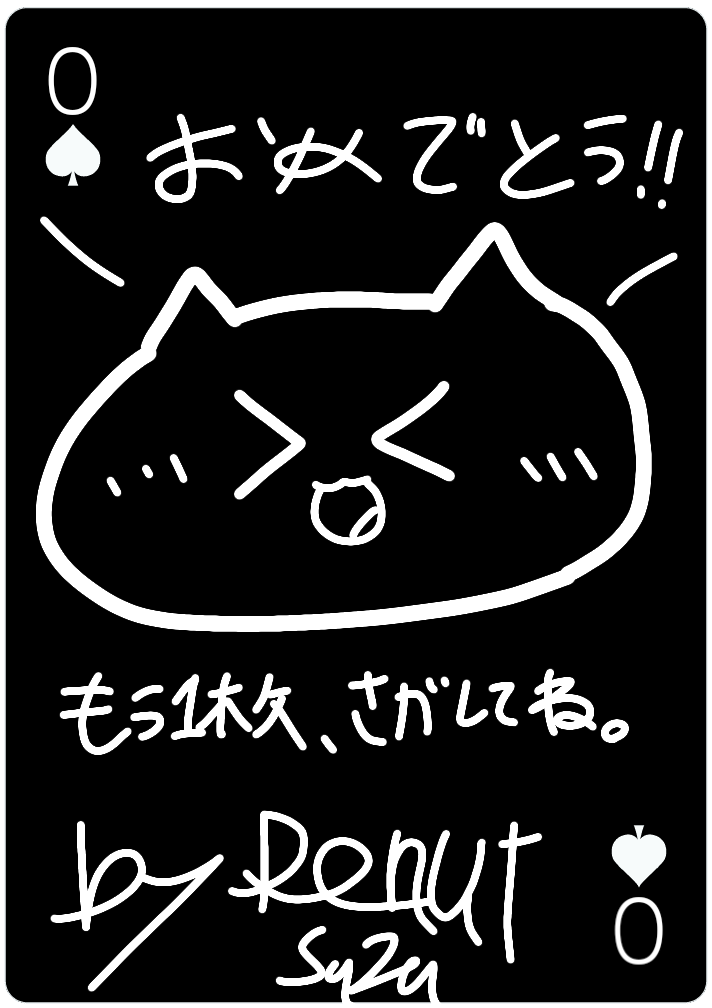 0
おめでとう!!
もう1枚、さがしてね。
by Renut
Suzu
0